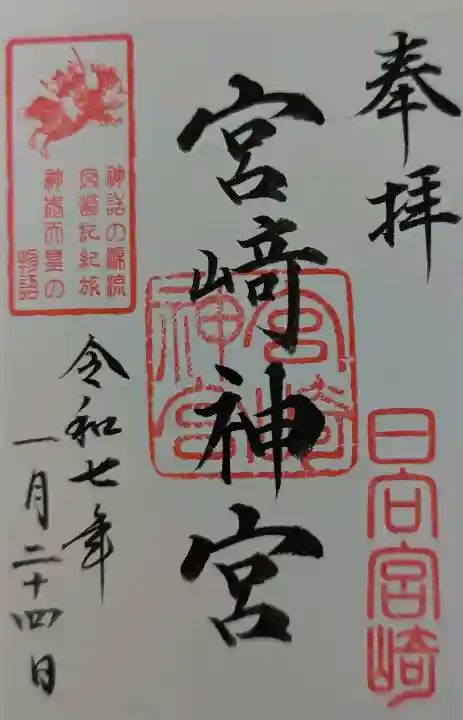 奉拝
日向宮崎
宮﨑神宮
宮崎神宮
神話の源流
宮崎記紀旅
神武天皇の
物語
令和七年
一月二十四日